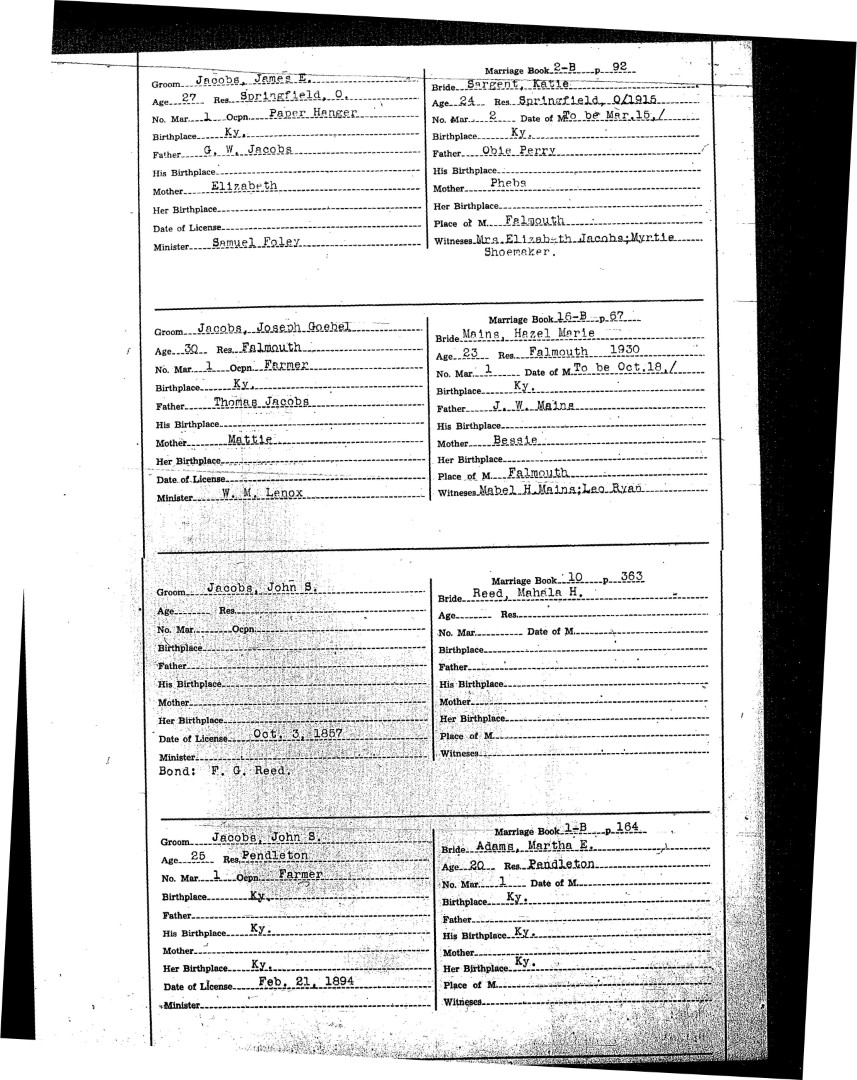 Marriage Book 2-B p 92
Groom Jacobs, James E.
Bride Sargent, Katie
Age 27 Res Springfield, O.
Age 24 Res Springfield, O/1915
No. Mar 1 Ocpn Paper Hanger
No. Mar 2 Date of M To be Mar.15,/
Birthplace Ky.
Birthplace Ky.
Father G. W. Jacobs
Father Obie Perry
His Birthplace
His Birthplace
Mother Elizabeth
Mother Phebs
Her Birthplace
Her Birthplace
Date of License
Place of M. Falmouth
Minister Samuel Foley
Witneses Mrs.Elizabeth Jacobs;Myrtie
Shoemaker.
Marriage Book 16-B p 67
Groom Jacobs, Joseph Goebel
Bride Mains, Hazel Marie
Age 30 Res Falmouth
Age 23 Res Falmouth 1930
No. Mar 1 Ocpn Farmer
No. Mar 1 Date of M. To be Oct.18,/
Birthplace Ky.
Birthplace Ky.
Father Thomas Jacobs
Father J. W. Mains
His Birthplace
His Birthplace
Mother Mattie
Mother Bessie
Her Birthplace
Her Birthplace
Date of License
Place of M Falmouth
Minister W. M. Lenox
Witneses Mabel H.Mains;Leo Ryan
Marriage Book 10 p 363
Groom Jacobs, John S.
Bride Reed, Mahala H.
Age Res
Age Res
No. Mar Ocpn
No. Mar. Date of M.
Birthplace
Birthplace
Father
Father
His Birthplace
His Birthplace
Mother
Mother
Her Birthplace
Her Birthplace
Date of License Oct. 3, 1857
Place of M.
Minister
Witneses
Bond: F. G. Reed.
Marriage Book 1-B p 164
Groom Jacobs, John S.
Bride Adams, Martha E.
Age 25 Res Pendleton
Age 20 Res Pendleton
No. Mar 1 Ocpn Farmer
No. Mar 1 Date of M.
Birthplace Ky.
Birthplace Ky.
Father
Father
His Birthplace Ky.
His Birthplace Ky.
Mother
Mother
Her Birthplace Ky.
Her Birthplace Ky.
Date of License Feb. 21, 1894
Place of M.
Minister
Witneses